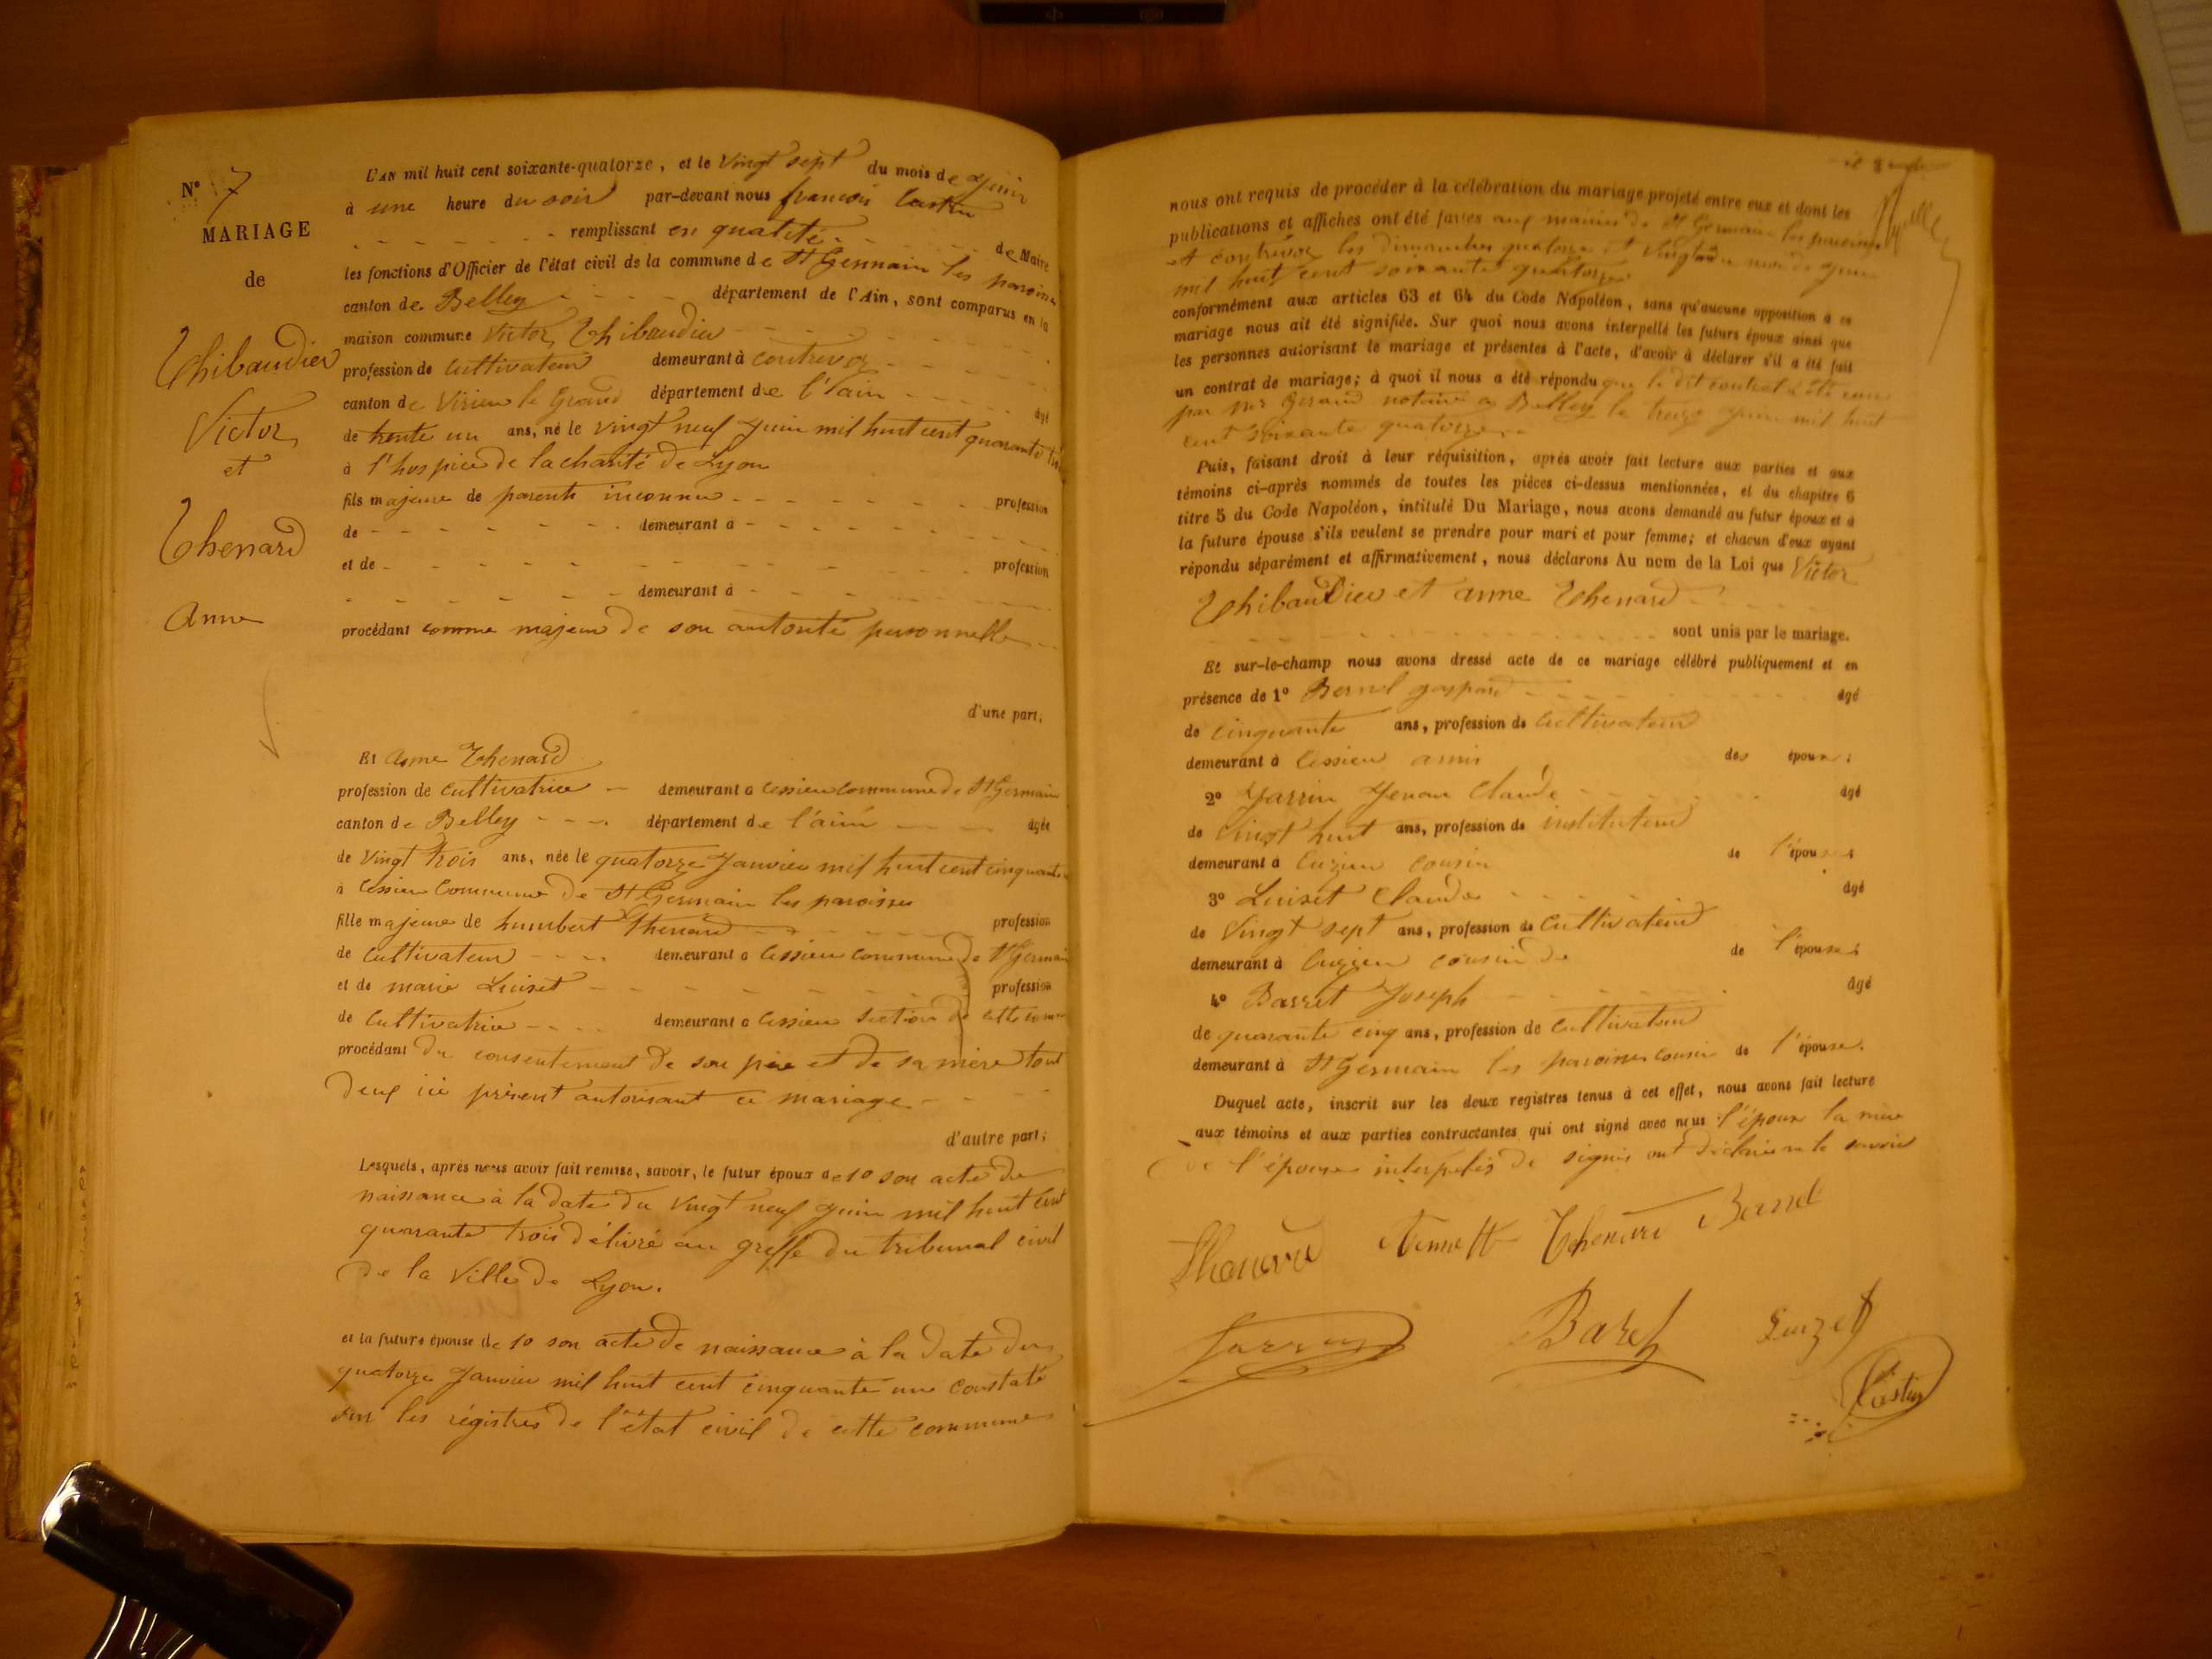 N° 7
MARIAGE
de
Thibaudier
Victor
et
Thenard
Anne
L'AN mil huit cent soixante-quatorze, et le Vingt sept du mois de Juin
à une heure du soir par-devant nous françois Castin
remplissant en qualité de Maire
les fonctions d'Officier de l'état civil de la commune de St Germain les paroisses
canton de Belley département de l'Ain, sont comparus en la
maison commune Victor Thibaudier
profession de Cultivateur demeurant à contrevoz
canton de Virieu le Grand département de l'ain âgé
de trente un ans, né le vingt neuf Juin mil huit cent quarante trois
à l'hospice de la charité de Lyon
fils majeure de parents inconnus profession
de demeurant à
et de profession
demeurant à
procédant comme majeur de son autorité personnelle
d'une part;
Et Anne Thenard
profession de Cultivatrice demeurant a cessieu commune de St Germain
canton de Belley département de l'ain âgée
de Vingt trois ans, née le quatorze Janvier mil huit cent cinquante
à Cessieu Commune de St Germain les paroisses
fille majeure de humbert Thenard profession
de Cultivateur demeurant a Cessieu commune de St Germain
et de marie Luiset profession
de Cultivatrice demeurant a Cessieu Section de cette commune
procédant du consentement de son père et de sa mère tout
deux ici présent autorisant ce mariage
d'autre part;
Lesquels, après nous avoir fait remise, savoir, le futur époux de 1o son acte de
naissance à la date du Vingt neuf Juin mil huit cent
quarante trois délivré au greffe du tribunal civil
de la Ville de Lyon.
et la future épouse de 1o son acte de naissance à la date du
quatorze Janvier mil huit cent cinquante une constaté
sur les régistres de l'état civil de cette commune
nous ont requis de procéder à la célébration du mariage projeté entre eux et dont les
publications et affiches ont été faites aux mairies de St Germain les paroisses
et contrevoz les dimanches quatorze et Vingt du mois de Juin
mil huit cent soixante quatorze
conformément aux articles 63 et 64 du Code Napoléon, sans qu'aucune opposition à ce
mariage nous ait été signifiée. Sur quoi nous avons interpellé les futurs époux ainsi que
les personnes autorisant le mariage et présentes à l'acte, d'avoir à déclarer s'il a été fait
un contrat de mariage; à quoi il nous a été répondu que le dit contrat a été
par Mr notaire a Belley le treize Juin mil huit
cent soixante quatorze
Puis, faisant droit à leur réquisition, après avoir fait lecture aux parties et aux
témoins ci-après nommés de toutes les pièces ci-dessus mentionnées, et du chapitre 6
titre 5 du Code Napoléon, intitulé Du Mariage, nous avons demandé au futur époux et à
la future épouse s'ils veulent se prendre pour mari et pour femme; et chacun d'eux ayant
répondu séparément et affirmativement, nous déclarons Au nom de la Loi que Victor
Thibaudier et anne Thenard
sont unis par le mariage.
Et sur-le-champ nous avons dressé acte de ce mariage célébré publiquement et en
présence de 1° Bernel gaspard âgé
de cinquante ans, profession de Cultivateur
demeurant à Cessieu amis des époux;
2° Jarrin Claude âgé
de Vingt huit ans, profession de instituteur
demeurant à Cuzieu cousin de l'épouse;
3° Luiset Claude âgé
de Vingt sept ans, profession de Cultivateur
demeurant à cousin de de l'épouse;
4° Barret Joseph âgé
de quarante cinq ans, profession de Cultivateur
demeurant à St Germain les paroisses cousin de l'épouse.
Duquel acte, inscrit sur les deux registres tenus à cet effet, nous avons fait lecture
aux témoins et aux parties contractantes qui ont signé avec nous l'époux la mère
de l'épouse interpelés de signer ont déclaré ne le savoir
Thenard Thenard Bernel
Jarrin Baret Luizet
Castin